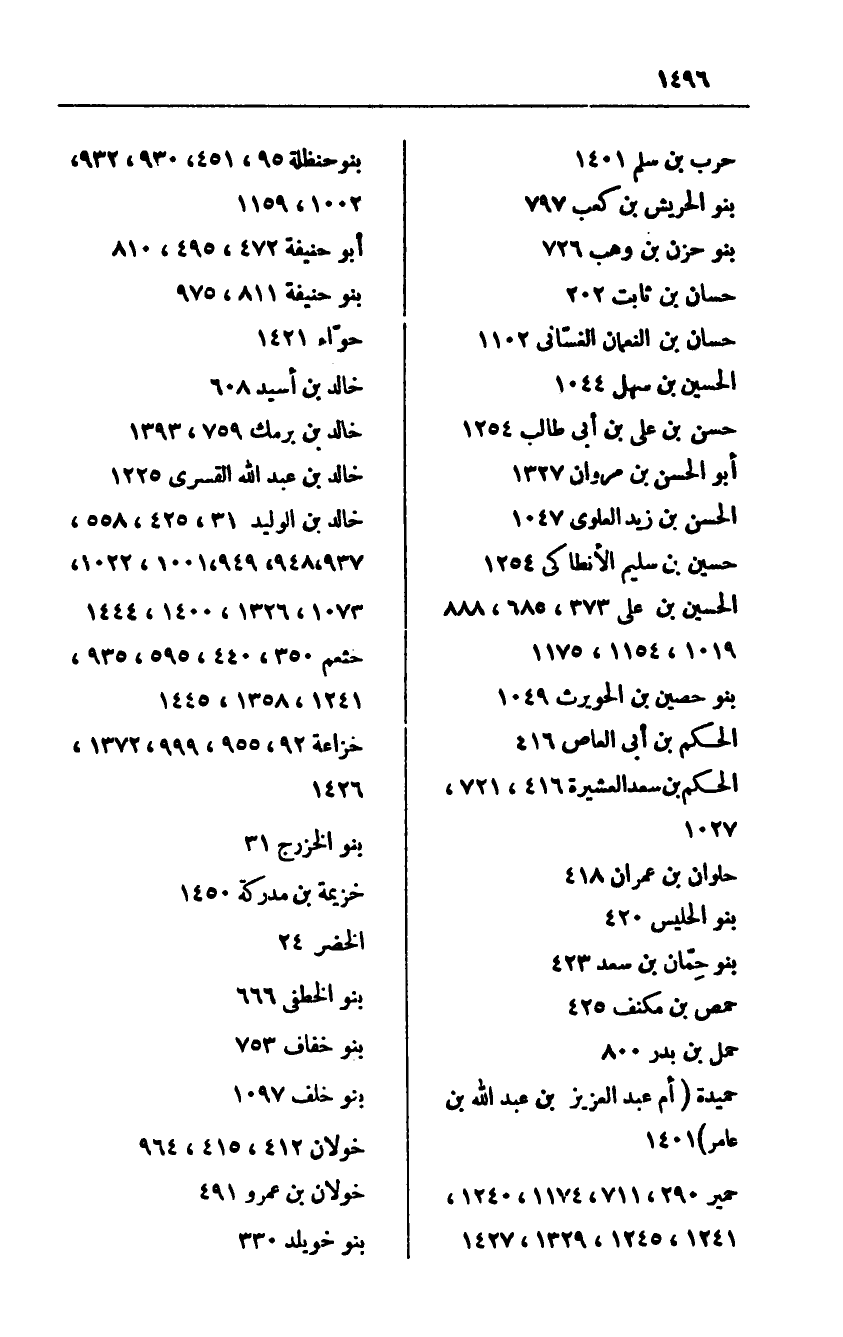 ١٤٩٦
حرب بن سلم ١٤٠١
بنو الحريش بن كعب ٧٩٧
بنو حزن بن وهب ٧٢٦
حسان بن ثابت ٢٠٢
حسان بن النعمان الغسّانى ١١٠٢
الحسين بن سهل ١٠٤٤
حسن بن على بن أبى طالب ١٢٥٤
أبو الحسن بن مروان ١٣٢٧
الحسن بن زيد العلوى ١٠٤٧
حسين بن سليم الأنطاكى ١٢٥٤
الحسين بن على ٣٧٣ ، ٦٨٥ ، ٨٨٨
١٠١٩ ، ١١٥٤ ، ١١٧٥
بنو حصين بن الحويرث ١٠٤٩
الحكم بن أبى العاص ٤١٦
الحكم بن سعد العشيرة ٤١٦ ، ٧٢١ ،
١٠٢٧
حلوان بن عمران ٤١٨
بنو الحليس ٤٢٠
بنو حِمّان بن سعد ٤٢٣
حمص بن مكنف ٤٢٥
حمل بن بدر ٨٠٠
حميدة ( أم عبد العزيز بن عبد الله بن
عامر) ١٤٠١
حمير ٢٩٠ ، ٧١١ ، ١١٧٤ ، ١٢٤٠ ،
١٢٤١ ، ١٢٤٥ ، ١٣٢٩ ، ١٤٢٧
بنو حنظلة ٩٥ ، ٤٥١ ، ٩٣٠ ، ٩٣٢ ،
١٠٠٢ ، ١١٥٩
أبو حنيفة ٤٧٢ ، ٤٩٥ ، ٨١٠
بنو حنيفة ٨١١ ، ٩٧٥
حوّاء ١٤٢١
خالد بن أسيد ٦٠٨
خالد بن برمك ٧٥٩ ، ١٣٩٣
خالد بن عبد الله القسرى ١٢٢٥
خالد بن الوليد ٣١ ، ٤٢٥ ، ٥٥٨ ،
٩٣٧ ، ٩٤٨ ، ٩٤٩ ، ١٠٠١ ، ١٠٢٢ ،
١٠٧٣ ، ١٣٢٦ ، ١٤٠٠ ، ١٤٤٤
خثعم ٣٥٠ ، ٤٤٠ ، ٥٩٥ ، ٩٣٥ ،
١٢٤١ ، ١٣٥٨ ، ١٤٤٥
خزاعة ٩٢ ، ٩٥٥ ، ٩٩٩ ، ١٣٧٢ ،
١٤٢٦
بنو الخزرج ٣١
خزيمة بن مدركة ١٤٥٠
الخضر ٢٤
بنو الخطفى ٦٦٦
بنو خفاف ٧٥٣
بنو خلف ١٠٩٧
خولان ٤١٢ ، ٤١٥ ، ٩٦٤
خولان بن عمرو ٤٩١
بنو خويلد ٣٣٠